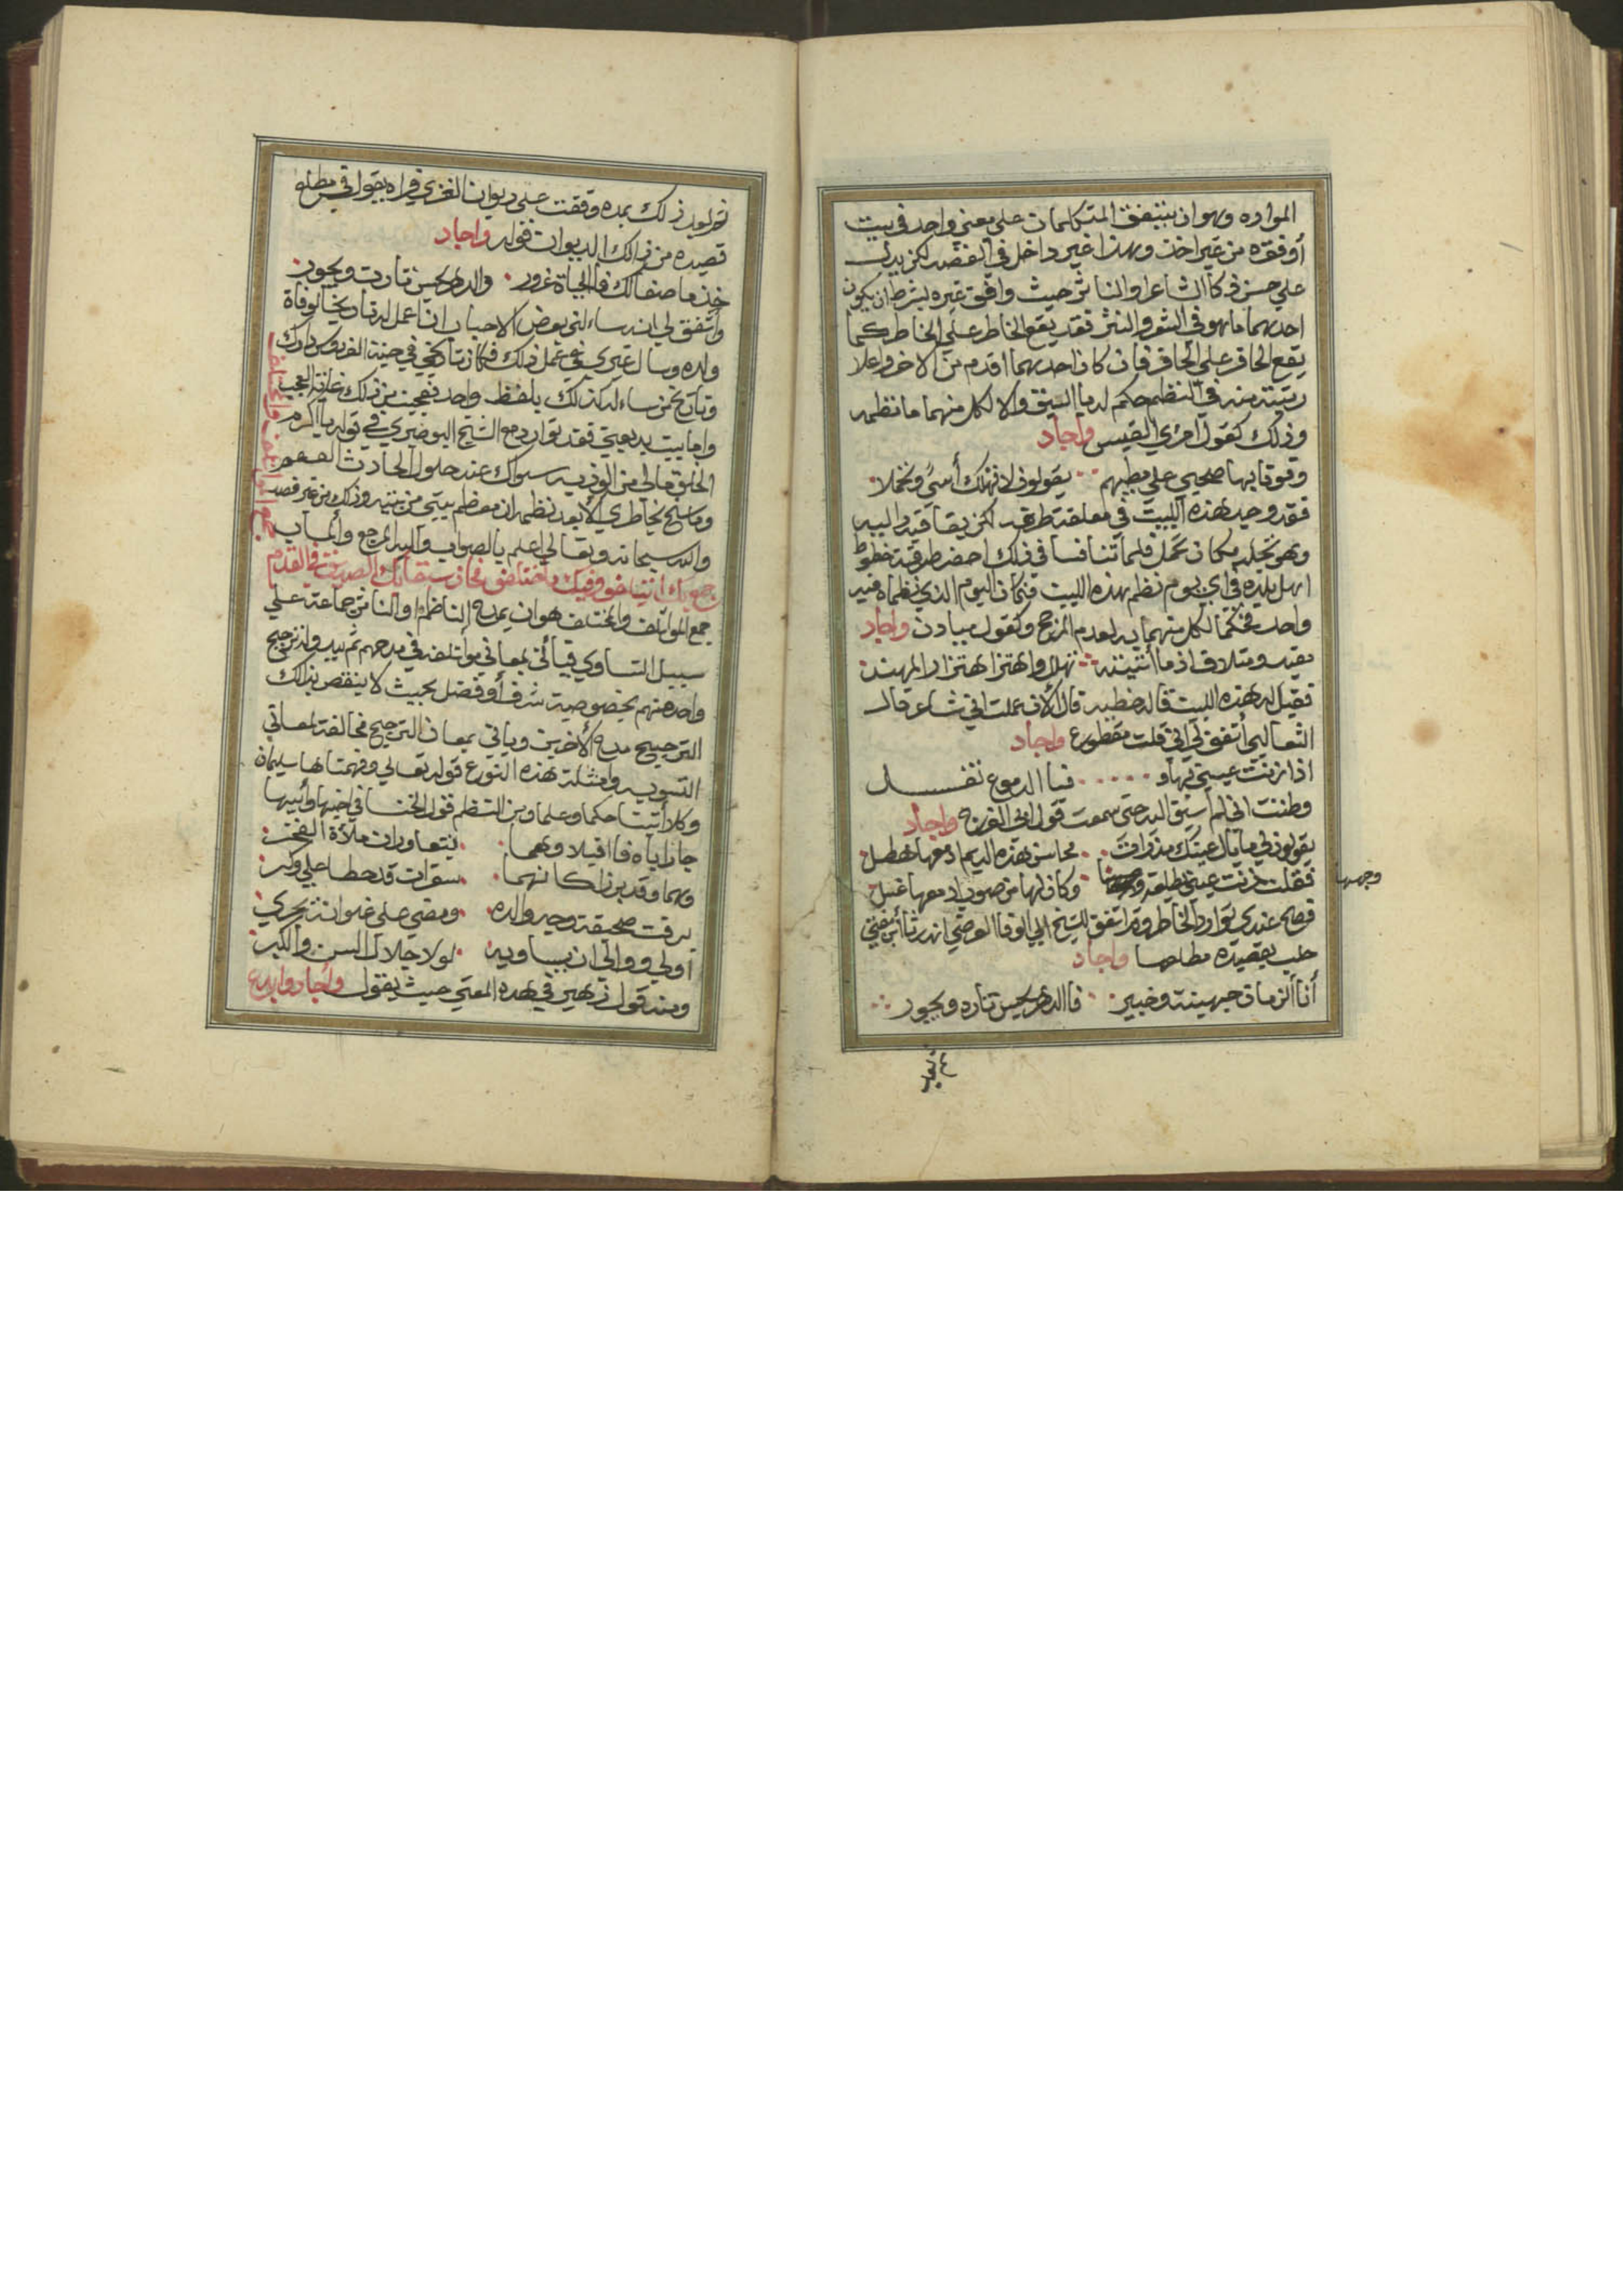 المواده وهو ان يتفق المتكلمان على معنى واحد في بيت
أو فقره من غير اخذ وهذا غير داخل في القصد لكن يدل
علي حسن ذكا الشاعر او الناثر حيث وافق غيره بشرط ان يكون
احدهما ماهو في الشعر والنثر فقد يقع الخاطر على الخاطر كما
يقع الحافر علي الحافر فان كان احدهما اقدم من الاخر واعلا
رتبته منه في النظم حكم له بالسبق والا لكل منهما ما نظمه
وذلك كقول امرئ القيس واجاد
وقوفا بها صحبي علي مطيهم يقولون لا تهلك أسى وتجملا
فقد وجد هذه البيت في معلقة طرفه لكن بقافية داليه
وهو تجلد مكان تجمل فلما تنافسا في ذلك احضر طرفة خطوط
اهل بلده في اي يوم نظم هذه البيت فكان اليوم الذي نظماه فيه
واحد فحكما لكل منهما به لعدم المرجح وكقول ميادن واجاد
مفيد ومتلاف اذ ما أتيته تهلل واهتز اهتزاز المهند
فقيل له هذه البيت قاله خطيه قال الآن عملت اني شاعر قال
الثعالبي أتفق لي اني قلت مقطوع واجاد
اذا زنت عيني بها فبا الدموع تغسل
وظننت اني لم أسبق اليه حتى سمعت قول ابي الفرج واجاد
يقولون لي ما بال عينك مذ رات محاسن هذه الديم ادمعها هطل
فقلت زنت عيني بطلعة وكان لها من صوب ادمعها غسل
وجهها
فصح عندي توارد الخاطر وقد اتفق للشيخ ابي الوفا العرضي انه رثا مفتي
حلب بقصيده مطلعها واجاد
أنا الزمان جهينة وخبير فا الدهر يحسن تاره ويجور
ثم بعد
ثم بعد ذلك بمده وقفت على ديوان الغزي فراه يقول في مطلع
قصيده من ذالك الديوان قوله واجاد
خذ ما صفا لك فا الحياة غرور والدهر يحسن تارت ويجور
وأتفق لي انه ساءلني بعض الاحباب ان اعمل له تاريخا لوفاة
ولده وسال غيري في عمل ذلك فكان تاريخي في جنة الفردوس دارك
وتاريخ من ساءله كذلك بلفظ واحد فعجبت من ذلك غاية العجب
واما بيت بديعيتي فقد توارد مع الشيخ البوصيري في قوله يا اكرم
الخلق مالي من الوذ به سواك عند حلول الحادث العمم
وما سنح بخاطري الا بعد نظمه ان معظم بيتي من بيته وذلك من غير قصد
والله سبحانه وتعالى اعلم بالصواب واليه المرجع والماب
جمع المؤتلف والمختلف
جمع المؤتلف والمختلف هو ان يمدح الناظم او الناثر جماعة علي
سبيل التساوي فيأتي بمعاني مؤتلفه في مدحهم ثم يريد ان ترجيح
واحد منهم بخصوصية شرف أو فضل بحيث لا ينقص بذالك
الترجيح مدح الآخرين وياتي بمعان الترجيح مخالفة لمعاني
التسويه وامثلة هذه النوع قوله تعالي وفهمناها سليمان
وكلا آتينا حكما وعلما ومن النظم قول الخنسا في اخيها وأبيها
جارا اباه فا اقبلا وهما يتعاوران ملأة الفخر
وهما وقد برزا كانهما سقران قد حطا علي وكر
برقت صحيفة وجه والده ومضي على غلوانه يجري
أولي ووالي ان يساويه لولا جلال السن والكبر
ومنه قول زهير في هذه المعنى حيث يقول واجاد وابدع